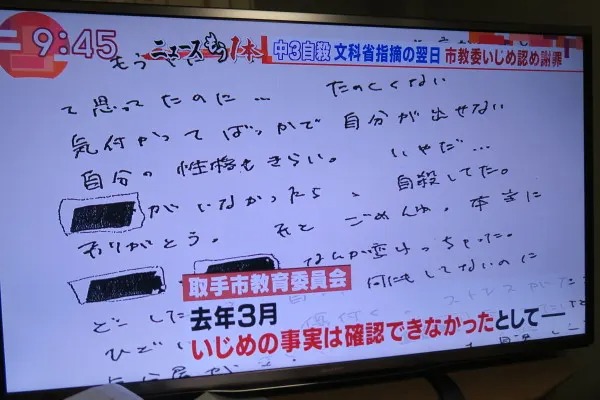 9:45
ニュース 1本
中3自殺 文科省指摘の翌日 市教委いじめ認め謝罪
もう
て思ってたのに… たのしくない
気付かってばっかで 自分が出せない
自分の性格もきらい。 いやだ…
がいなかったら、自殺してた。
ありがとう。 ごめんね。本当に
なんか変わっちゃった。
取手市教育委員会
何にもしてないのに
どこ
去年3月
ストレスが
ひど
いじめの事実は確認できなかったとして―